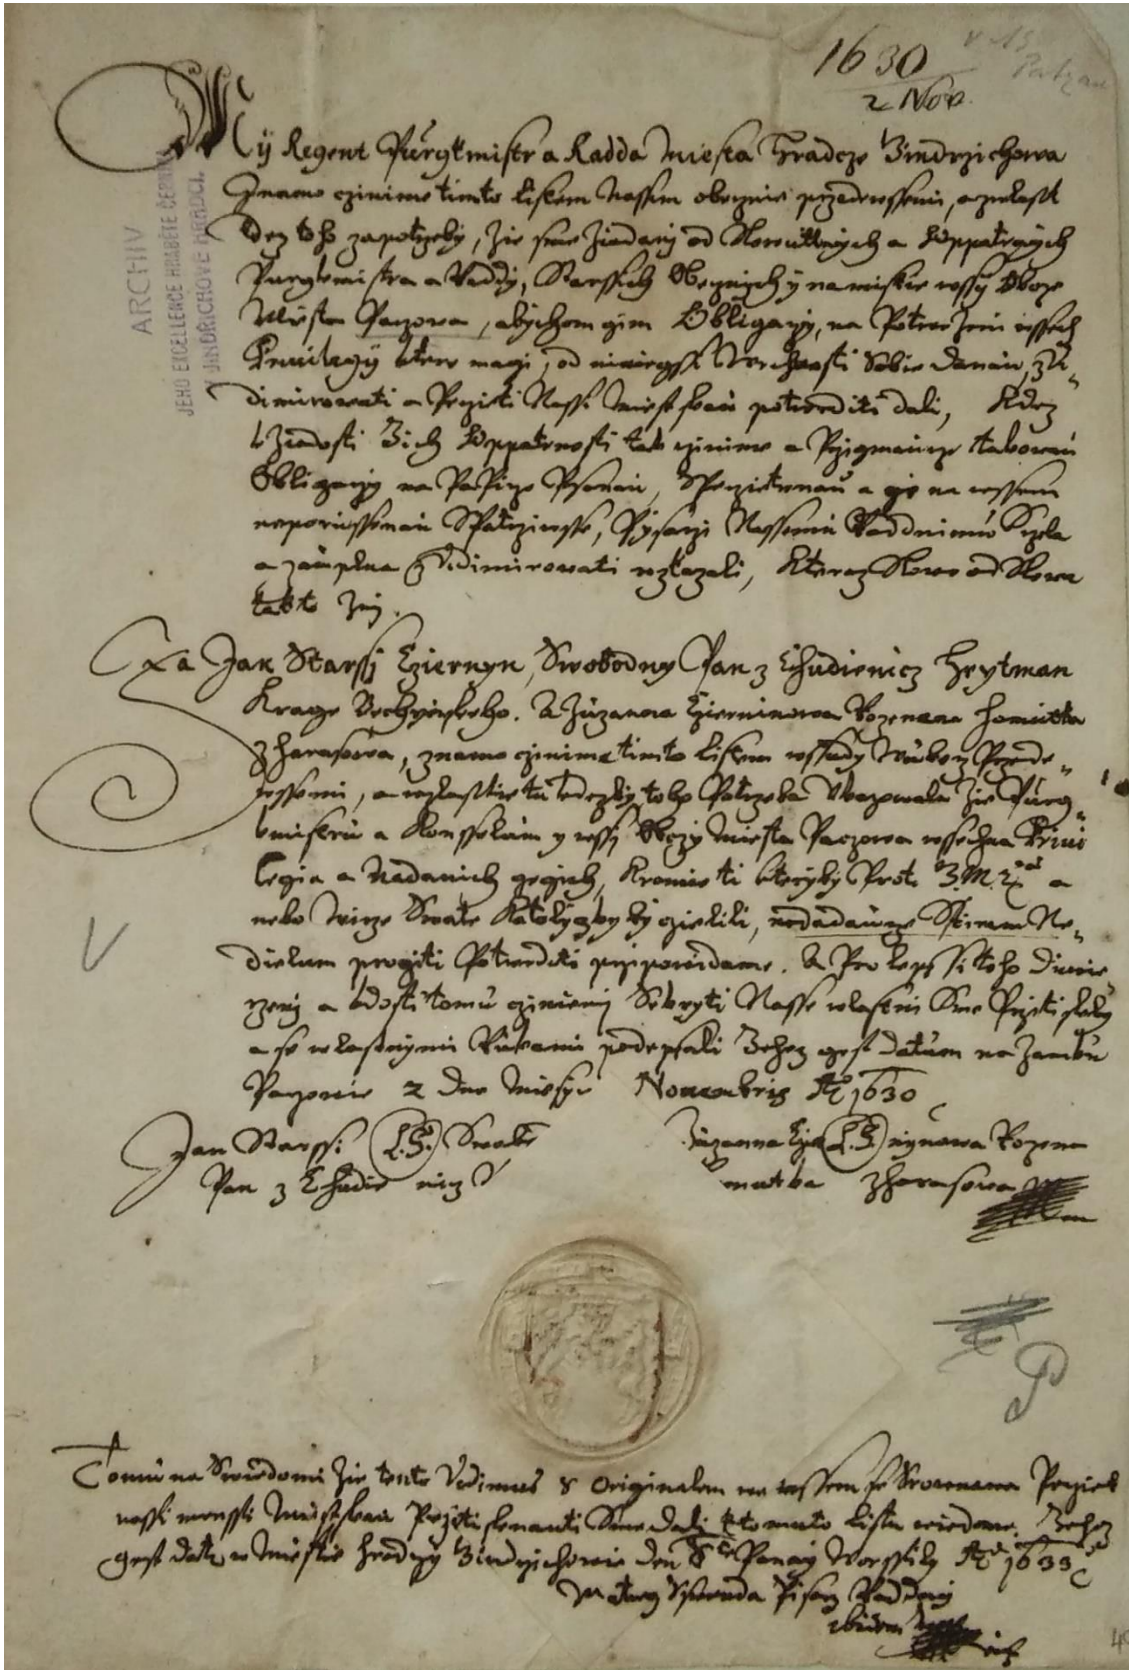 1630
2 Nov.
V 13
Patzau
ARCHIV
JEHO EXCELLENCE HRABĚTE ČERNÍNA
V JINDŘICHOVĚ HRADCI.
My Regent Purgkmistr a Radda Miesta Hradcze Jindrzichowa
Znamo czinime timto listem Nassim obecznie przedewssemi, a zwlasst
kdez toho zapotrzeby, zie sme ziadany od Slowutnych a Oppatrnych
Purgkmistra a Raddy, Starssich Obecznych y na mistie wssy Obcze
Miesta Paczowa, abychom gim Obligaczy, na Potwrzeni wssech
Priuilegy ktere magi, od niniegssi Wrchnosti Sobie danau, z Vi„
dimirowati a Peczeti Nassi Miestskau potwrditi dali, Kdez
k ziadosti Jich Oppatrnosti tak czinime a Przigmaucze takowau
Obligaczy na Papirze Psanau, Speczietienau a gi na wssem
neporussenau Spatrziwsse, Pysarzi Nassemu Raddnimu Czela
a zauplna z Vidimirowati rozkazali, Kteraz Slowo od Slowa
takto Zni.
Gа Jan Starssy Cziernyn, Swobodny Pan z Chudienicz Heytman
Krage Bechynskeho. A Zuzanna Czierninowa Rozenana Homutka
z Harasowa, znamo czinime timto listem wssudy Przede„
wssemi, a zwlasstie tu kdezby toho Potrzeba Vkazowala Zie Purg„
kmistru a Konsselum y wssy Obczy Miesta Paczowa wssechna Priui
legia a Nadanich gegich, Kromie ti kterziby Proti J. M. Cz. a
nebo Wirze Swate Katolyczky by czielili, nedadaucze Sstirem Ne„
dielum progiti Potwrditi przipowidame. A Pro lepssi toho Duwie„
rzeni a dosti tomu czinieni Sekryti Nasse wlastni Sme Przitiskly
a se wlastnymi Rukami podepsali Jehoz gest datum na Zamku
Paczowie 2 dne Miesycze Nouembris Ao 1630
Jan Starssi (L.S.) Swobo
Pan z Chudie nicz
Zuzanna Czie (L.S.) rnynowa Rozena
mutka z Harasowa
V
P
Tomu na Swiedomi Zie tento Vidimus s Originalem na wssem se Srownawa Peczet
nassi menssi Miestskau Przitisknauti Sme dali k tomuto listu wiedome. Jehoz
gest datum w Miestie Hradczy Jindrzichowie den S. Panny Worssily Ao 1633
Pisarz Raddny